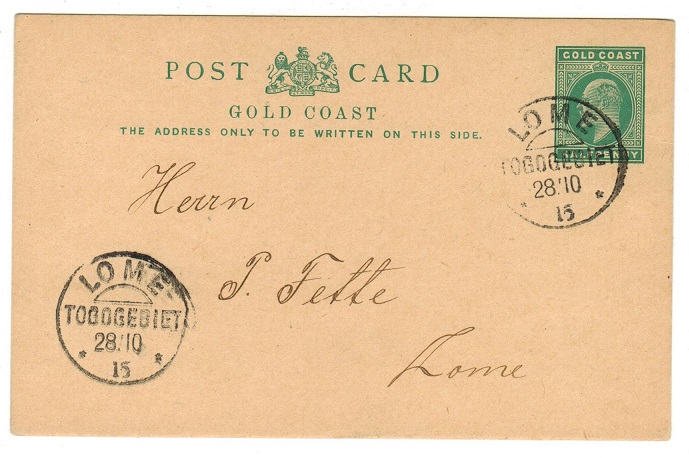 GOLD COAST
POST CARD
GOLD COAST
THE ADDRESS ONLY TO BE WRITTEN ON THIS SIDE.
HALFPENNY
LOME
TOGOGEBIET
28.10
* 15 *
Herrn
P. Fette
Lome
LOME
TOGOGEBIET
28.10
* 15 *